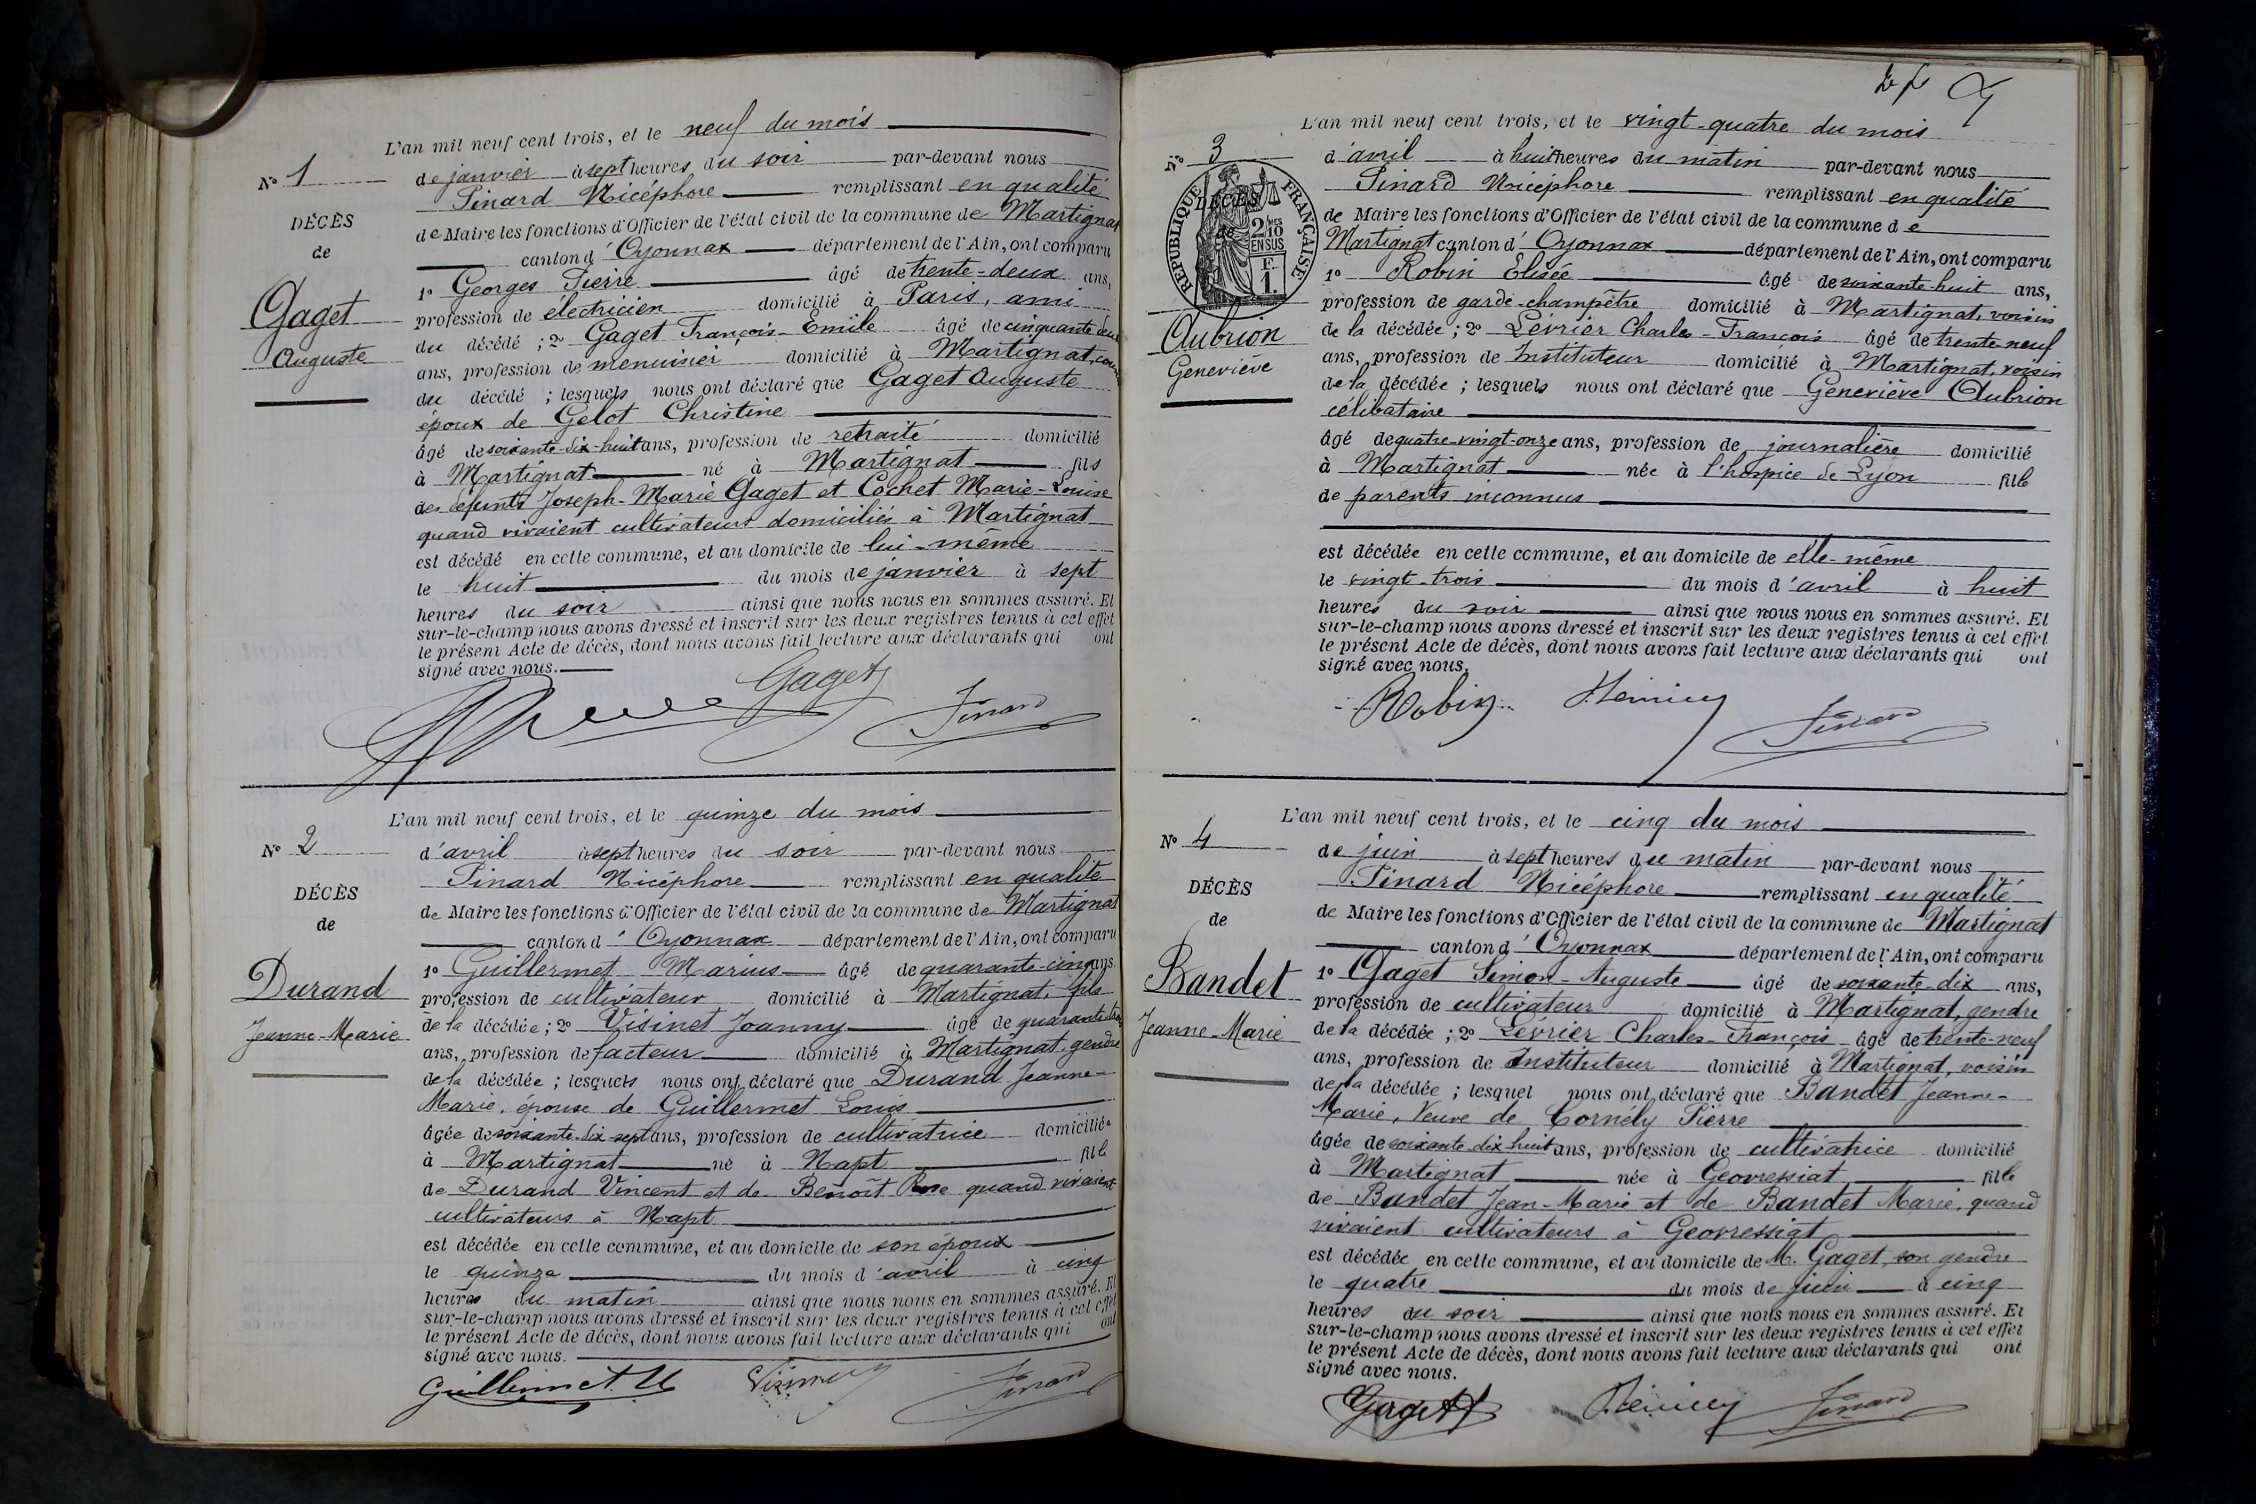 L'an mil neuf cent trois, et le neuf du mois
N° 1
de janvier à sept heures du soir par-devant nous
Pinard Nicéphore remplissant en qualité
DÉCÈS
de Maire les fonctions d'Officier de l'état civil de la commune de Martignat
de
canton d'Oyonnax département de l'Ain, ont comparu
1° Georges Pierre âgé de trente-deux ans,
Gaget
profession de électricien domicilié à Paris, ami
du décédé ; 2° Gaget François-Emile âgé de cinquante deux
Auguste
ans, profession de menuisier domicilié à Martignat,
du décédé ; lesquels nous ont déclaré que Gaget Auguste
époux de Gelot Christine
âgé de soixante-dix-huit ans, profession de retraité domicilié
à Martignat né à Martignat fils
des défunts Joseph-Marie Gaget et Cochet Marie-Louise
quand vivaient cultivateurs domiciliés à Martignat
est décédé en cette commune, et au domicile de lui-même
le huit du mois de janvier à sept
heures du soir ainsi que nous nous en sommes assuré. Et
sur-le-champ nous avons dressé et inscrit sur les deux registres tenus à cet effet
le présent Acte de décès, dont nous avons fait lecture aux déclarants qui ont
signé avec nous.
Gaget
Pinard
L'an mil neuf cent trois, et le quinze du mois
N° 2
d'avril à sept heures du soir par-devant nous
Pinard Nicéphore remplissant en qualité
DÉCÈS
de Maire les fonctions d'Officier de l'état civil de la commune de Martignat
de
canton d'Oyonnax département de l'Ain, ont comparu
1° Guillermet Marius âgé de quarante-cinq ans
Durand
profession de cultivateur domicilié à Martignat, fils
de la décédée ; 2° Visinet Joanny âgé de quarante-trois
Jeanne-Marie
ans, profession de facteur domicilié à Martignat, gendre
de la décédée ; lesquels nous ont déclaré que Durand Jeanne-
Marie, épouse de Guillermet Louis
âgée de soixante-dix-sept ans, profession de cultivatrice domiciliée
à Martignat né à Napt fille
de Durand Vincent et de Benoît Rose quand vivaient
cultivateurs à Napt
est décédée en cette commune, et au domicile de son époux
le quinze du mois d'avril à cinq
heures du matin ainsi que nous nous en sommes assuré. Et
sur-le-champ nous avons dressé et inscrit sur les deux registres tenus à cet effet
le présent Acte de décès, dont nous avons fait lecture aux déclarants qui ont
signé avec nous.
Guillermet M Visinet Pinard
L'an mil neuf cent trois, et le vingt-quatre du mois
N° 3
d'avril à huit heures du matin par-devant nous
Pinard Nicéphore remplissant en qualité
RÉPUBLIQUE FRANÇAISE
DÉCÈS
de
2/10
EN SUS
F.
1.
de Maire les fonctions d'Officier de l'état civil de la commune de
Martignat canton d'Oyonnax département de l'Ain, ont comparu
1° Robin Elisée âgé de soixante-huit ans,
profession de garde-champêtre domicilié à Martignat, voisin
Aubrion
de la décédée ; 2° Lévrier Charles-François âgé de trente-neuf
Geneviève
ans, profession de Instituteur domicilié à Martignat, voisin
de la décédée ; lesquels nous ont déclaré que Geneviève Aubrion
célibataire
âgé de quatre-vingt-onze ans, profession de journalière domicilié
à Martignat née à l'hospice de Lyon fille
de parents inconnus
est décédée en cette commune, et au domicile de elle-même
le vingt-trois du mois d'avril à huit
heures du soir ainsi que nous nous en sommes assuré. Et
sur-le-champ nous avons dressé et inscrit sur les deux registres tenus à cet effet
le présent Acte de décès, dont nous avons fait lecture aux déclarants qui ont
signé avec nous.
Robin
Pinard
L'an mil neuf cent trois, et le cinq du mois
N° 4
de juin à sept heures du matin par-devant nous
Pinard Nicéphore remplissant en qualité
DÉCÈS
de Maire les fonctions d'Officier de l'état civil de la commune de Martignat
de
canton d'Oyonnax département de l'Ain, ont comparu
Bandet
1° Gaget Simon-Auguste âgé de soixante-dix ans,
profession de cultivateur domicilié à Martignat, gendre
Jeanne-Marie
de la décédée ; 2° Lévrier Charles-François âgé de trente-neuf
ans, profession de Instituteur domicilié à Martignat, voisin
de la décédée ; lesquel nous ont déclaré que Bandet Jeanne-
Marie, Veuve de Cornély Pierre
âgée de soixante-dix huit ans, profession de cultivatrice domicilié
à Martignat née à Geovressiat fille
de Bandet Jean-Marie et de Bandet Marie, quand
vivaient cultivateurs à Geovressiat
est décédée en cette commune, et au domicile de M. Gaget, son gendre
le quatre du mois de juin à cinq
heures du soir ainsi que nous nous en sommes assuré. Et
sur-le-champ nous avons dressé et inscrit sur les deux registres tenus à cet effet
le présent Acte de décès, dont nous avons fait lecture aux déclarants qui ont
signé avec nous.
Gaget Pinard